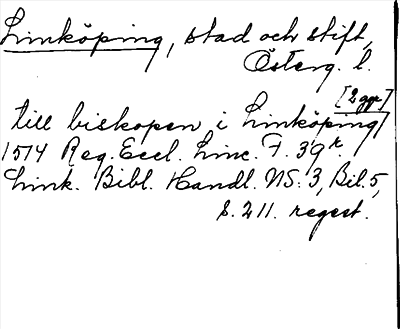 Linköping, stad och stift,
Österg. l.
[2 ggr]
till biskopen i Linköping
1574 Reg. Eccl. Linc. F. 39r.
Link. Bibl. Handl. NS. 3, Bil. 5,
S. 211. regest.